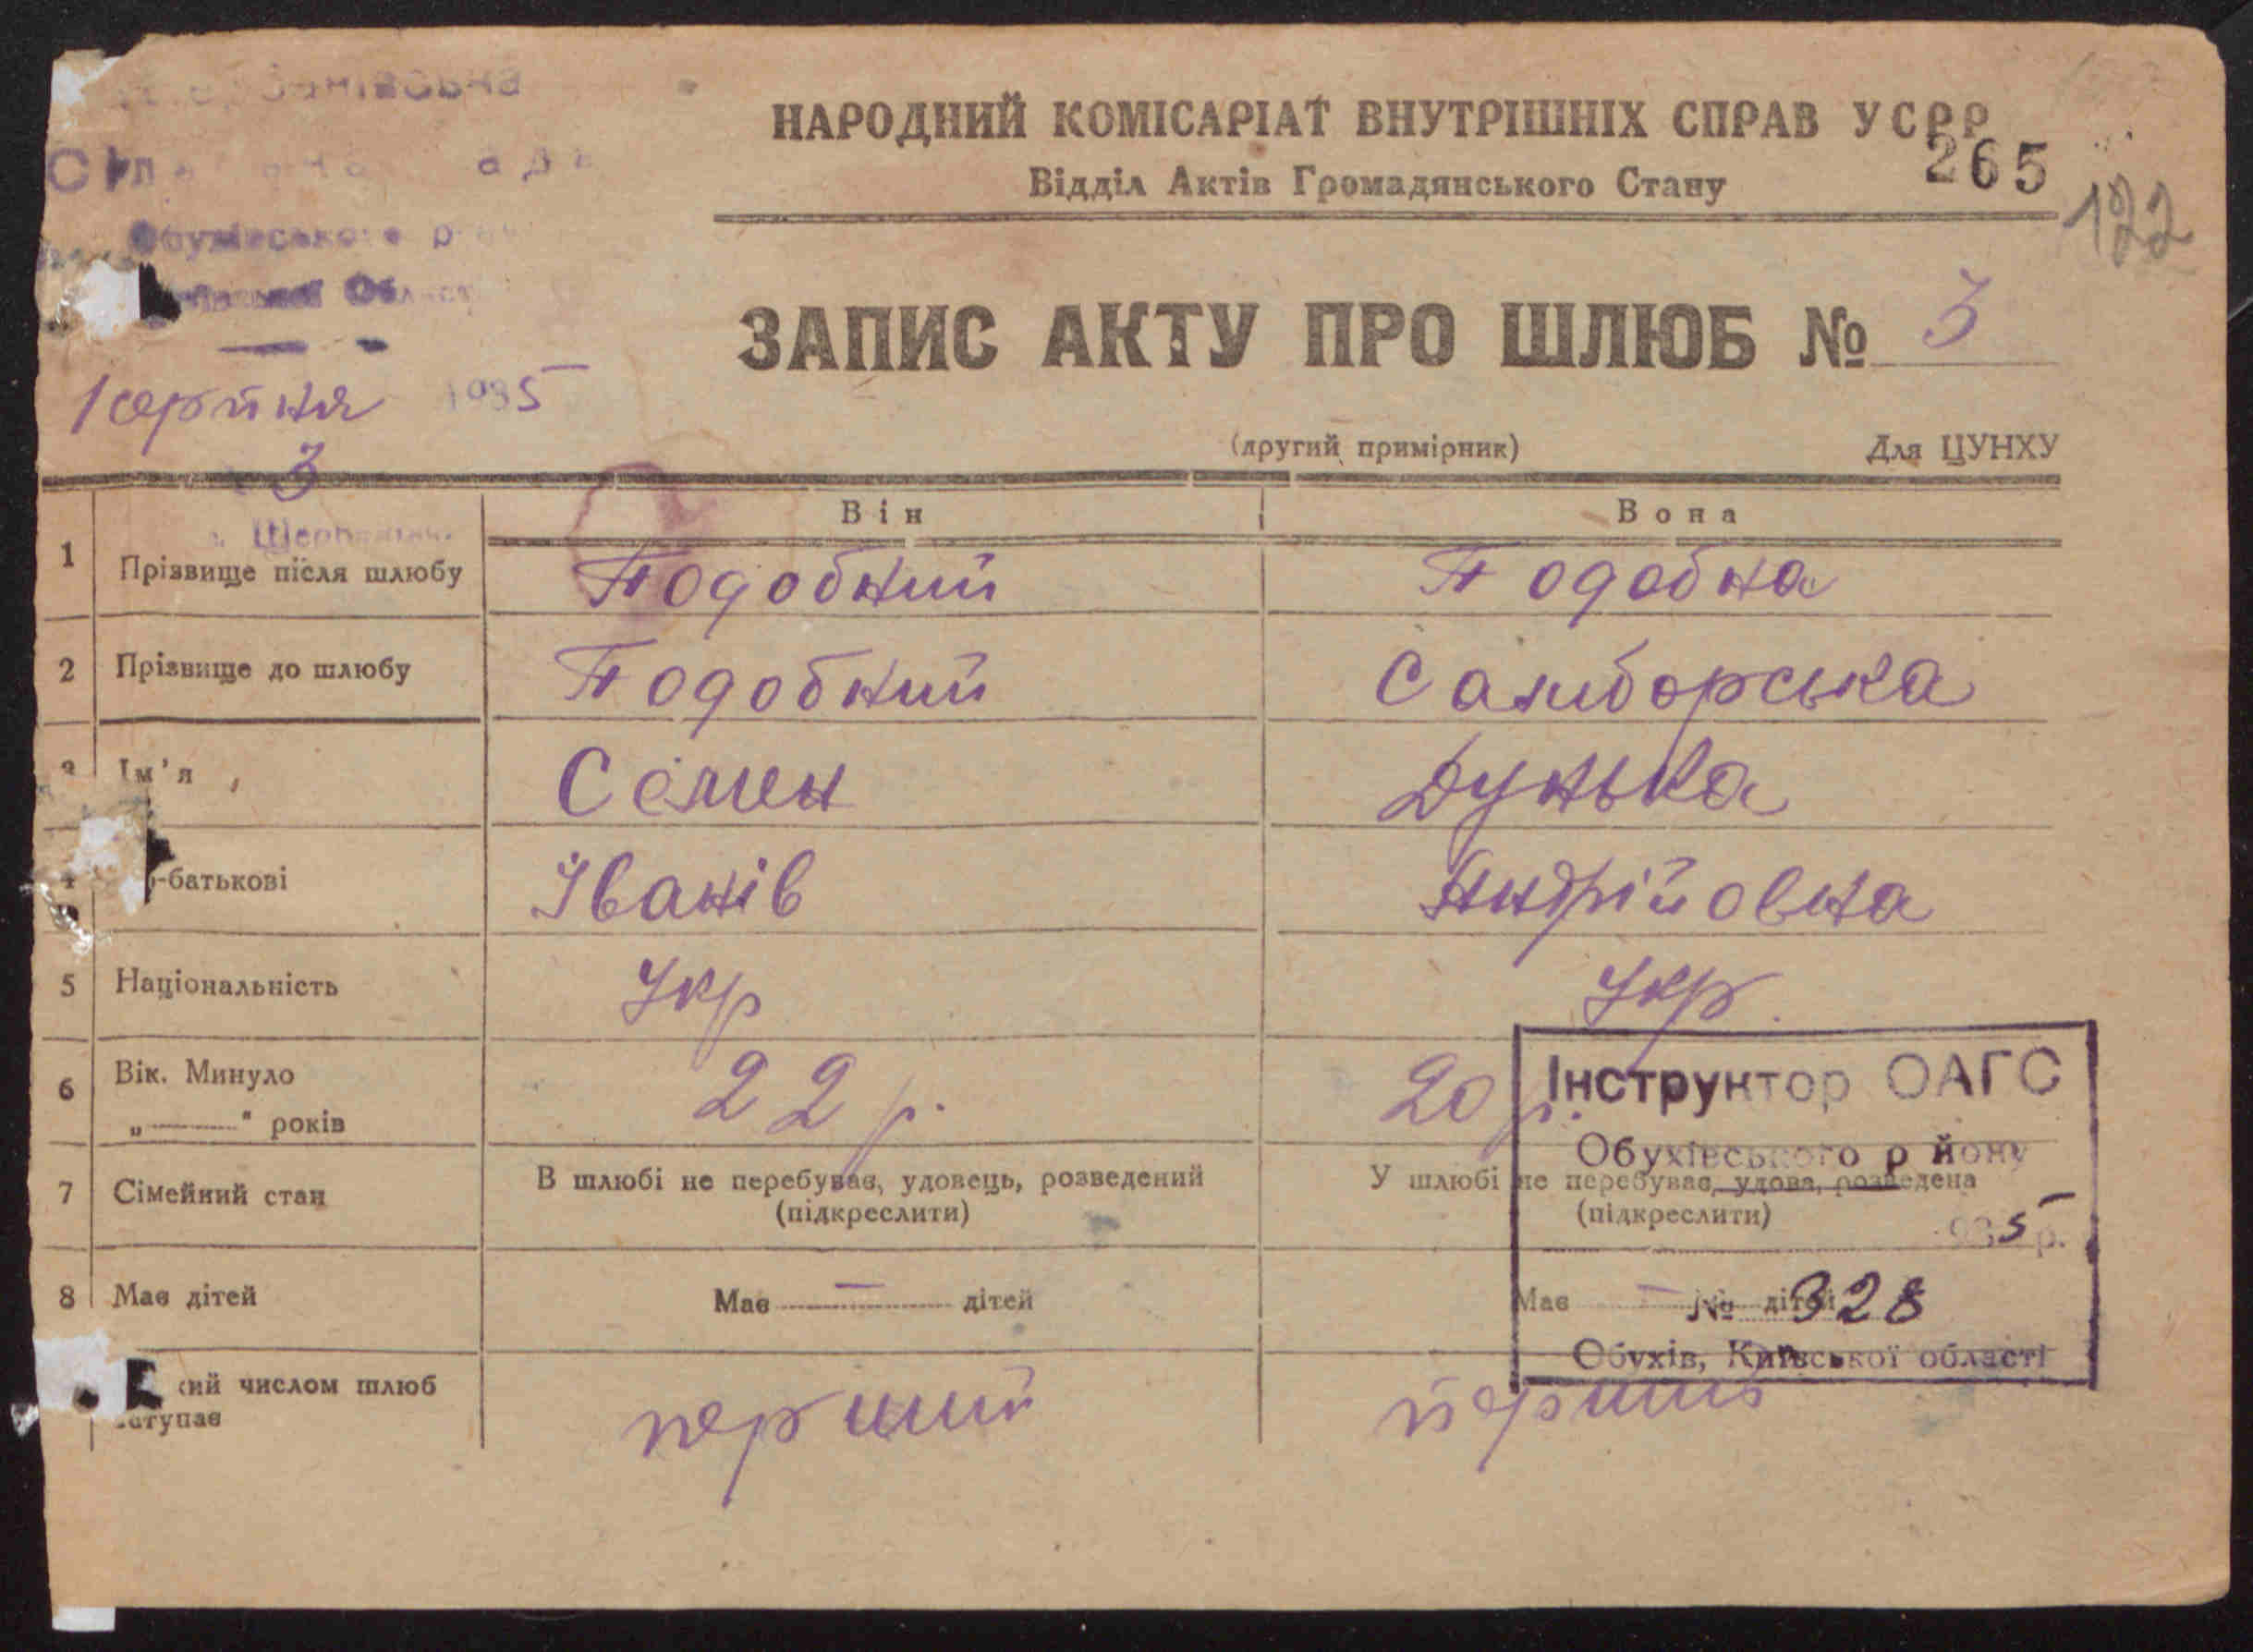 НАРОДНИЙ КОМІСАРІАТ ВНУТРІШНІХ СПРАВ УСРР
Відділ Актів Громадянського Стану
265
122
ЗАПИС АКТУ ПРО ШЛЮБ № 3
Обухівського
Області
1 серпня 1935
3
(другий примірник) Для ЦУНХУ
Він Вона
1 Прізвище після шлюбу Подобний Подобна
2 Прізвище до шлюбу Подобний Самборська
3 Ім'я Семен Дунька
4 -батькові Іванів Андрійовна
5 Національність Укр Укр.
6 Вік. Минуло
„ “ років 22 р. 20 р.
7 Сімейний стан В шлюбі не перебував, удовець, розведений У шлюбі не перебував, удова, розведена
(підкреслити) (підкреслити)
8 Має дітей Має — дітей Має — дітей
кий числом шлюб
вступає перший перший
Інструктор ОАГС
Обухівського району
1935 р.
№ 328
Обухів, Київської області